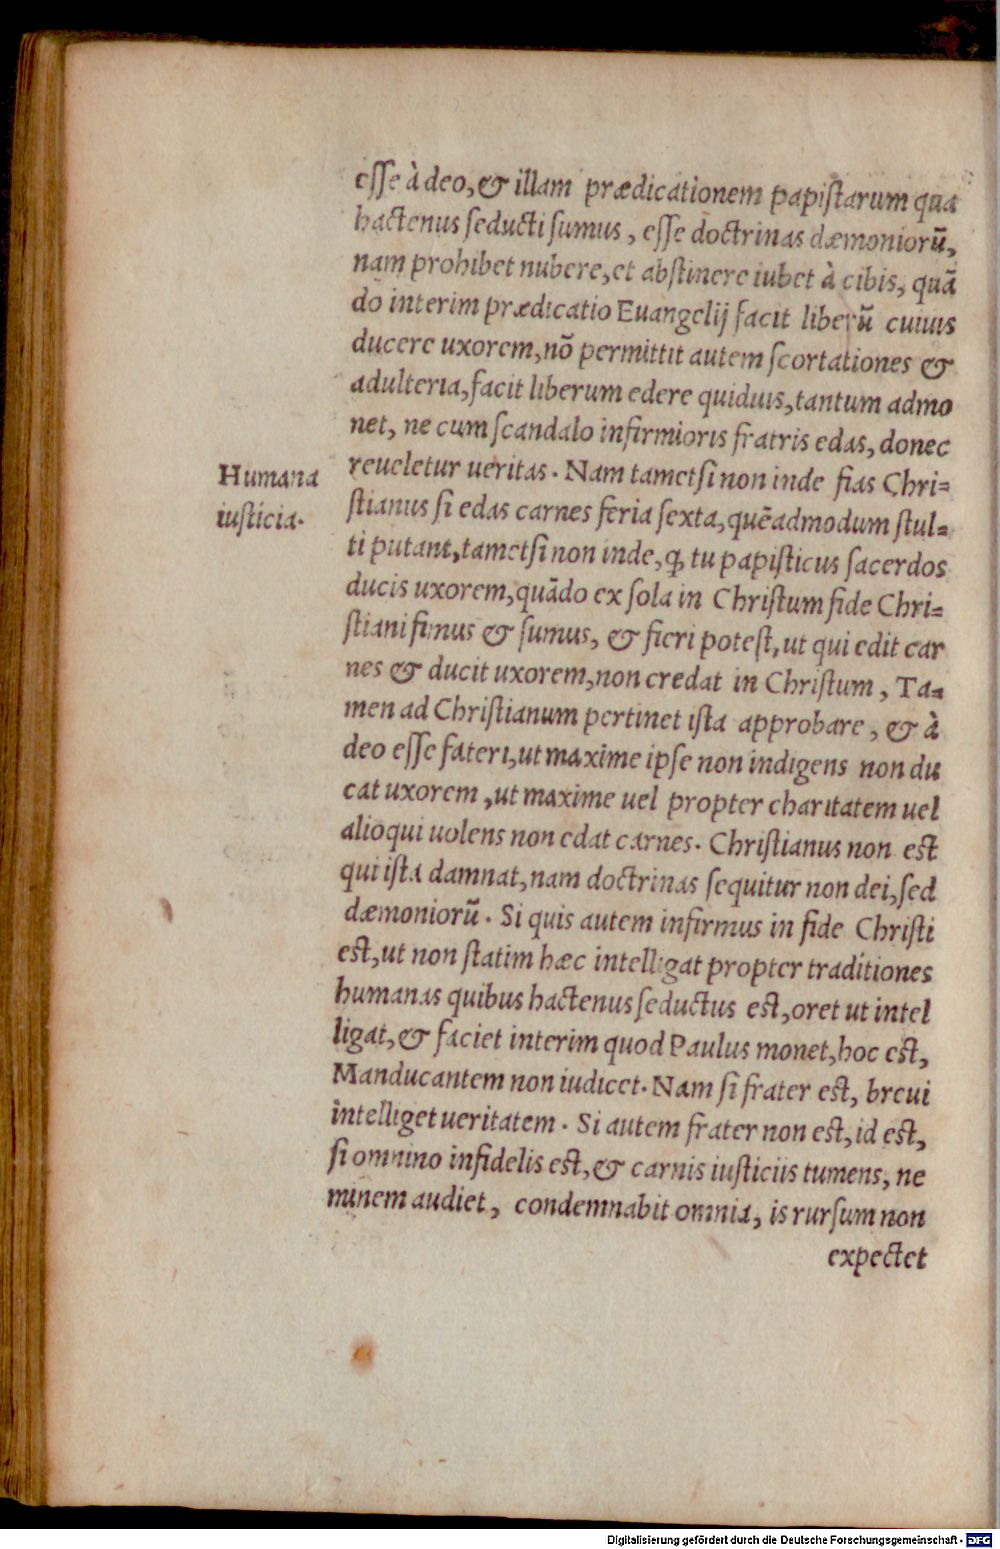 esse à deo, & illam prædicationem papistarum qua
hactenus seducti sumus, esse doctrinas dæmoniorũ,
nam prohibet nubere, et abstinere iubet à cibis, quã
do interim prædicatio Euangelij facit liberũ cuiuis
ducere uxorem, nõ permittit autem scortationes &
adulteria, facit liberum edere quiduis, tantum admo
net, ne cum scandalo infirmioris fratris edas, donec
reueletur ueritas. Nam tametsi non inde fias Chri=
Humana
iusticia.
stianus si edas carnes feria sexta, quẽadmodum stul=
ti putant, tametsi non inde, ꝙ tu papisticus sacerdos
ducis uxorem, quãdo ex sola in Christum fide Chri=
stiani fimus & sumus, & fieri potest, ut qui edit car
nes & ducit uxorem, non credat in Christum, Ta=
men ad Christianum pertinet ista approbare, & à
deo esse fateri, ut maxime ipse non indigens non du
cat uxorem, ut maxime uel propter charitatem uel
alioqui uolens non edat carnes. Christianus non est
qui ista damnat, nam doctrinas sequitur non dei, sed
dæmoniorũ. Si quis autem infirmus in fide Christi
est, ut non statim hæc intelligat propter traditiones
humanas quibus hactenus seductus est, oret ut intel
ligat, & faciet interim quod Paulus monet, hoc est,
Manducantem non iudicet. Nam si frater est, breui
intelliget ueritatem. Si autem frater non est, id est,
si omnino infidelis est, & carnis iusticiis tumens, ne
minem audiet, condemnabit omnia, is rursum non
expectet
Digitalisierung gefördert durch die Deutsche Forschungsgemeinschaft - DFG